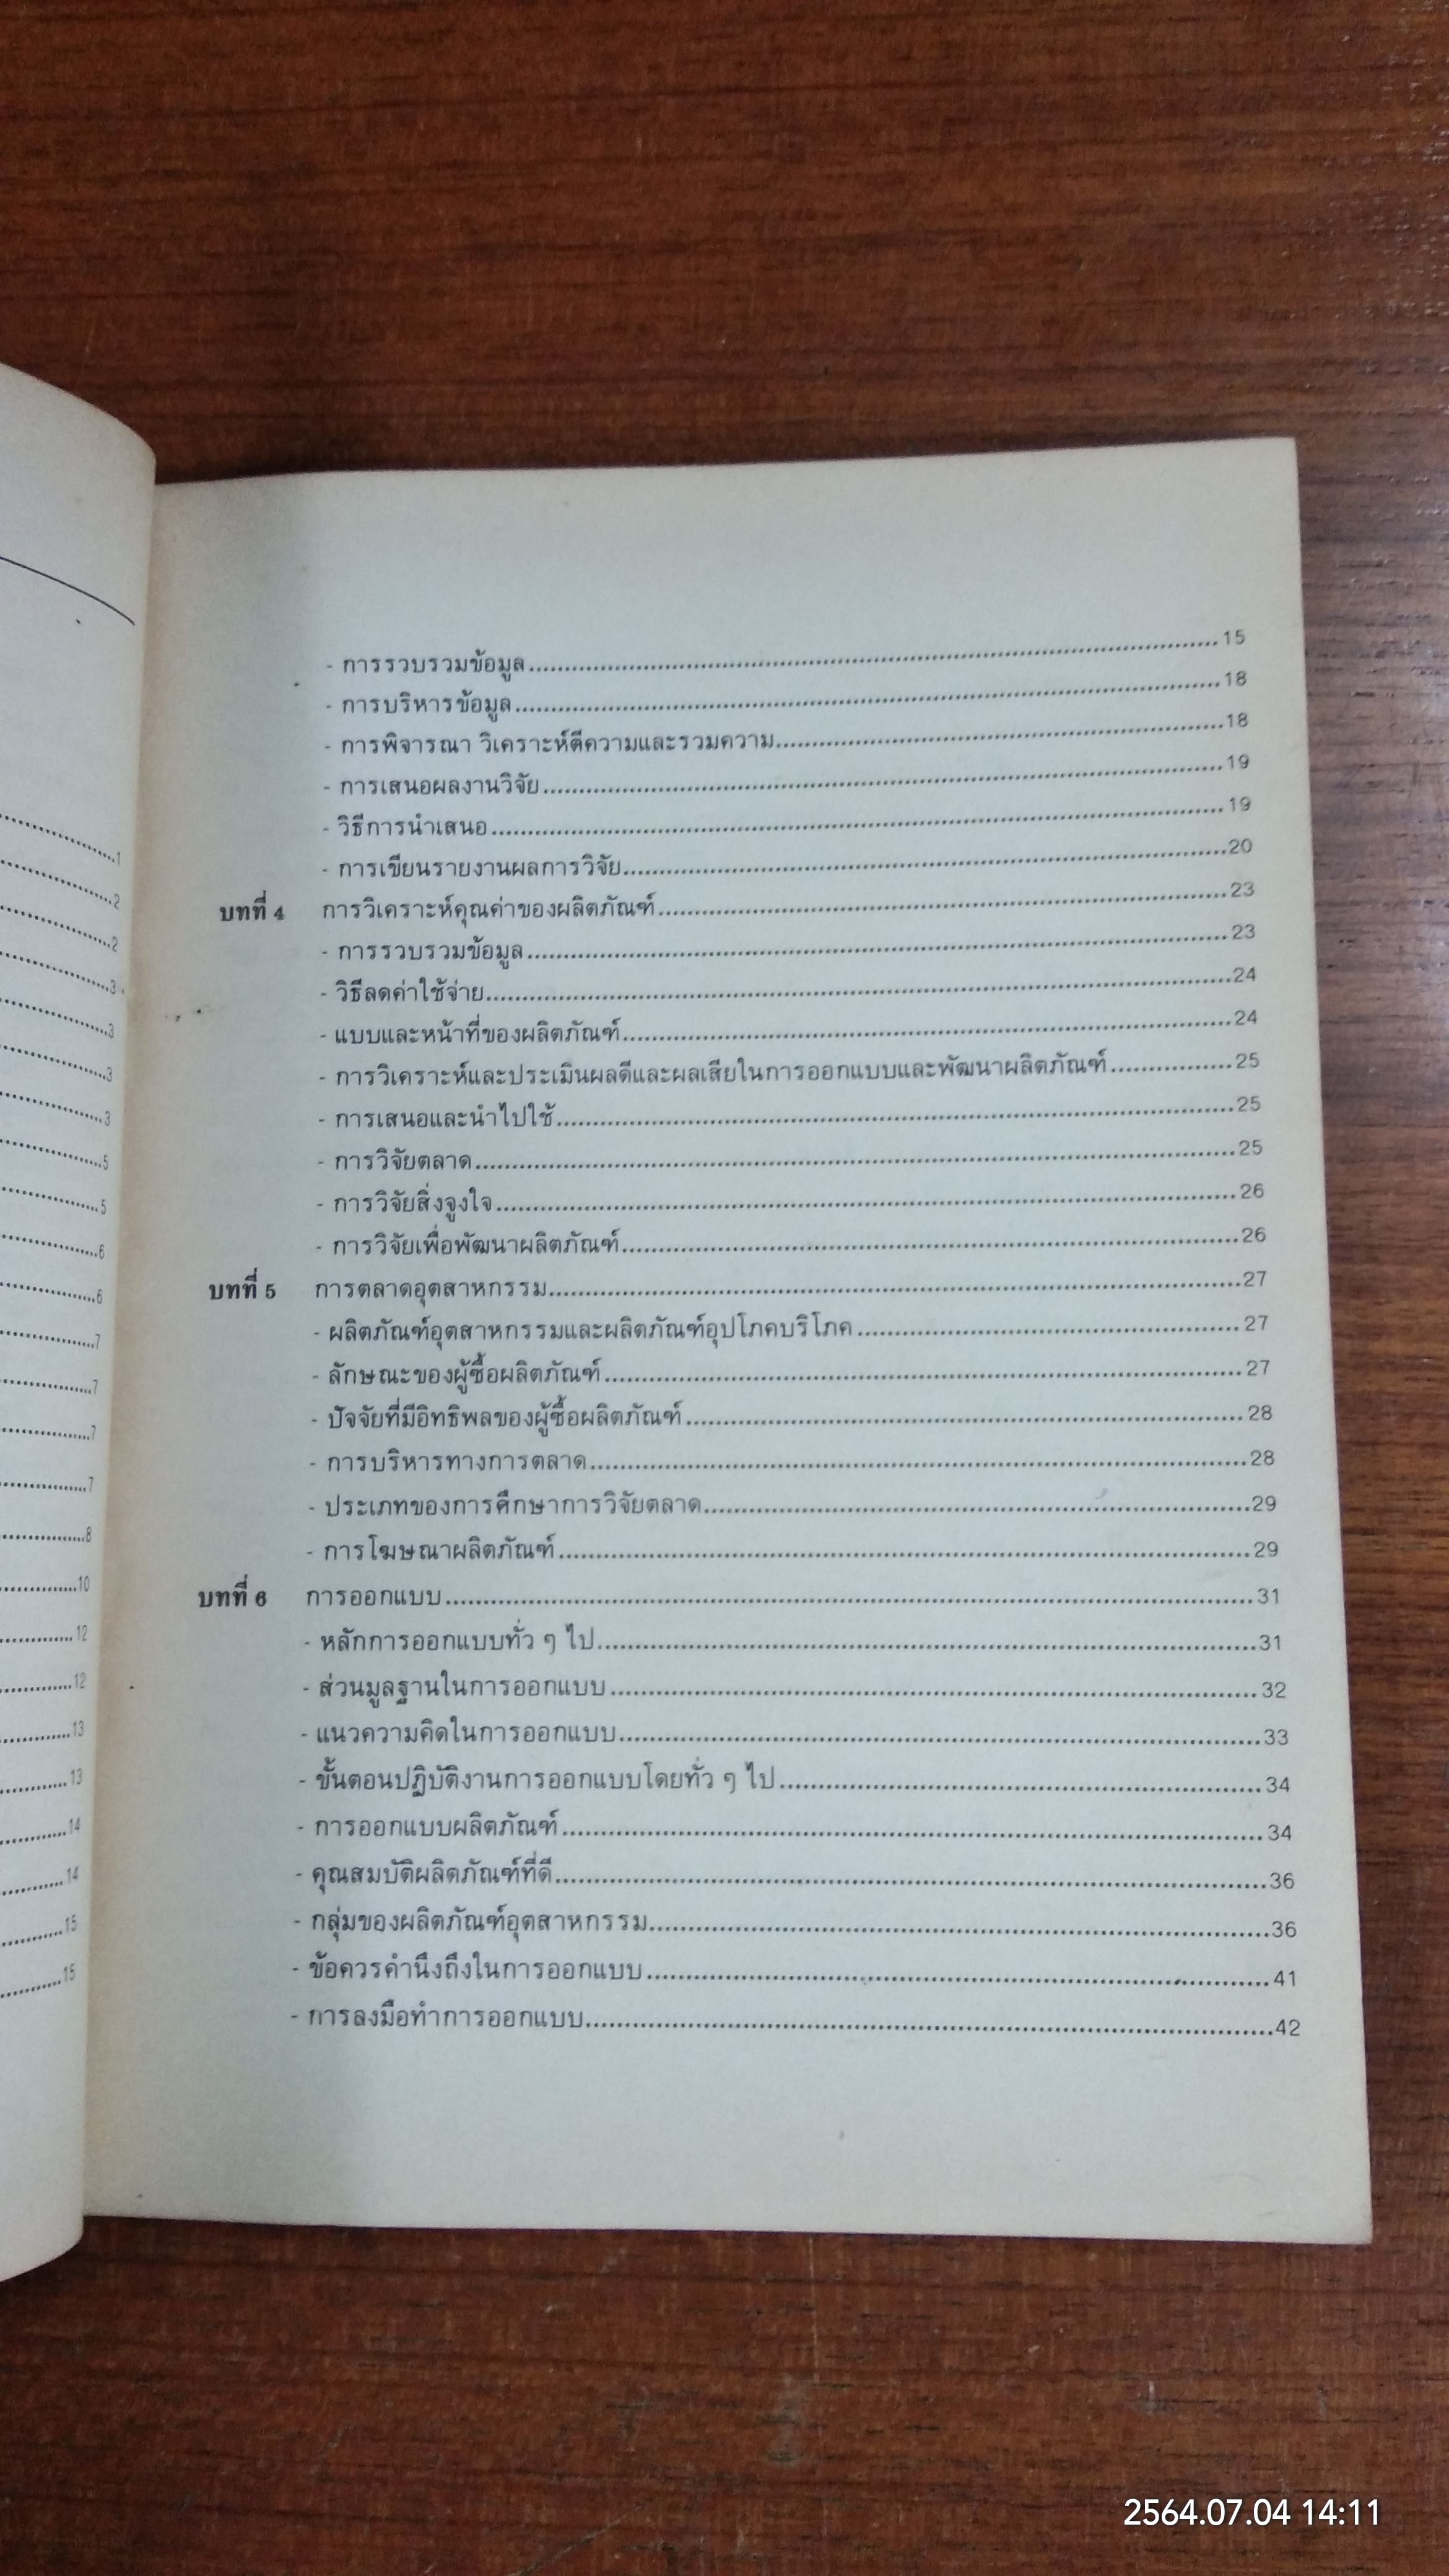 - การรวบรวมข้อมูล........15
- การบริหารข้อมูล........18
- การพิจารณา วิเคราะห์ตีความและรวมความ........18
- การเสนอผลงานวิจัย........19
- วิธีการนำเสนอ........19
- การเขียนรายงานผลการวิจัย........20
บทที่ 4 การวิเคราะห์คุณค่าของผลิตภัณฑ์........23
- การรวบรวมข้อมูล........23
- วิธีลดค่าใช้จ่าย........24
- แบบและหน้าที่ของผลิตภัณฑ์........24
- การวิเคราะห์และประเมินผลดีและผลเสียในการออกแบบและพัฒนาผลิตภัณฑ์........25
- การเสนอและนำไปใช้........25
- การวิจัยตลาด........25
- การวิจัยสิ่งจูงใจ........26
- การวิจัยเพื่อพัฒนาผลิตภัณฑ์........26
บทที่ 5 การตลาดอุตสาหกรรม........27
- ผลิตภัณฑ์อุตสาหกรรมและผลิตภัณฑ์อุปโภคบริโภค........27
- ลักษณะของผู้ซื้อผลิตภัณฑ์........27
- ปัจจัยที่มีอิทธิพลของผู้ซื้อผลิตภัณฑ์........28
- การบริหารทางการตลาด........28
- ประเภทของการศึกษาการวิจัยตลาด........29
- การโฆษณาผลิตภัณฑ์........29
บทที่ 6 การออกแบบ........31
- หลักการออกแบบทั่ว ๆ ไป........31
- ส่วนมูลฐานในการออกแบบ........32
- แนวความคิดในการออกแบบ........33
- ขั้นตอนปฏิบัติงานการออกแบบโดยทั่ว ๆ ไป........34
- การออกแบบผลิตภัณฑ์........34
- คุณสมบัติผลิตภัณฑ์ที่ดี........36
- กลุ่มของผลิตภัณฑ์อุตสาหกรรม........36
- ข้อควรคำนึงถึงในการออกแบบ........41
- การลงมือทำการออกแบบ........42
1
2
2
3
3
3
3
5
5
6
6
7
7
7
7
8
10
12
12
13
13
14
14
15
15
2564.07.04 14:11